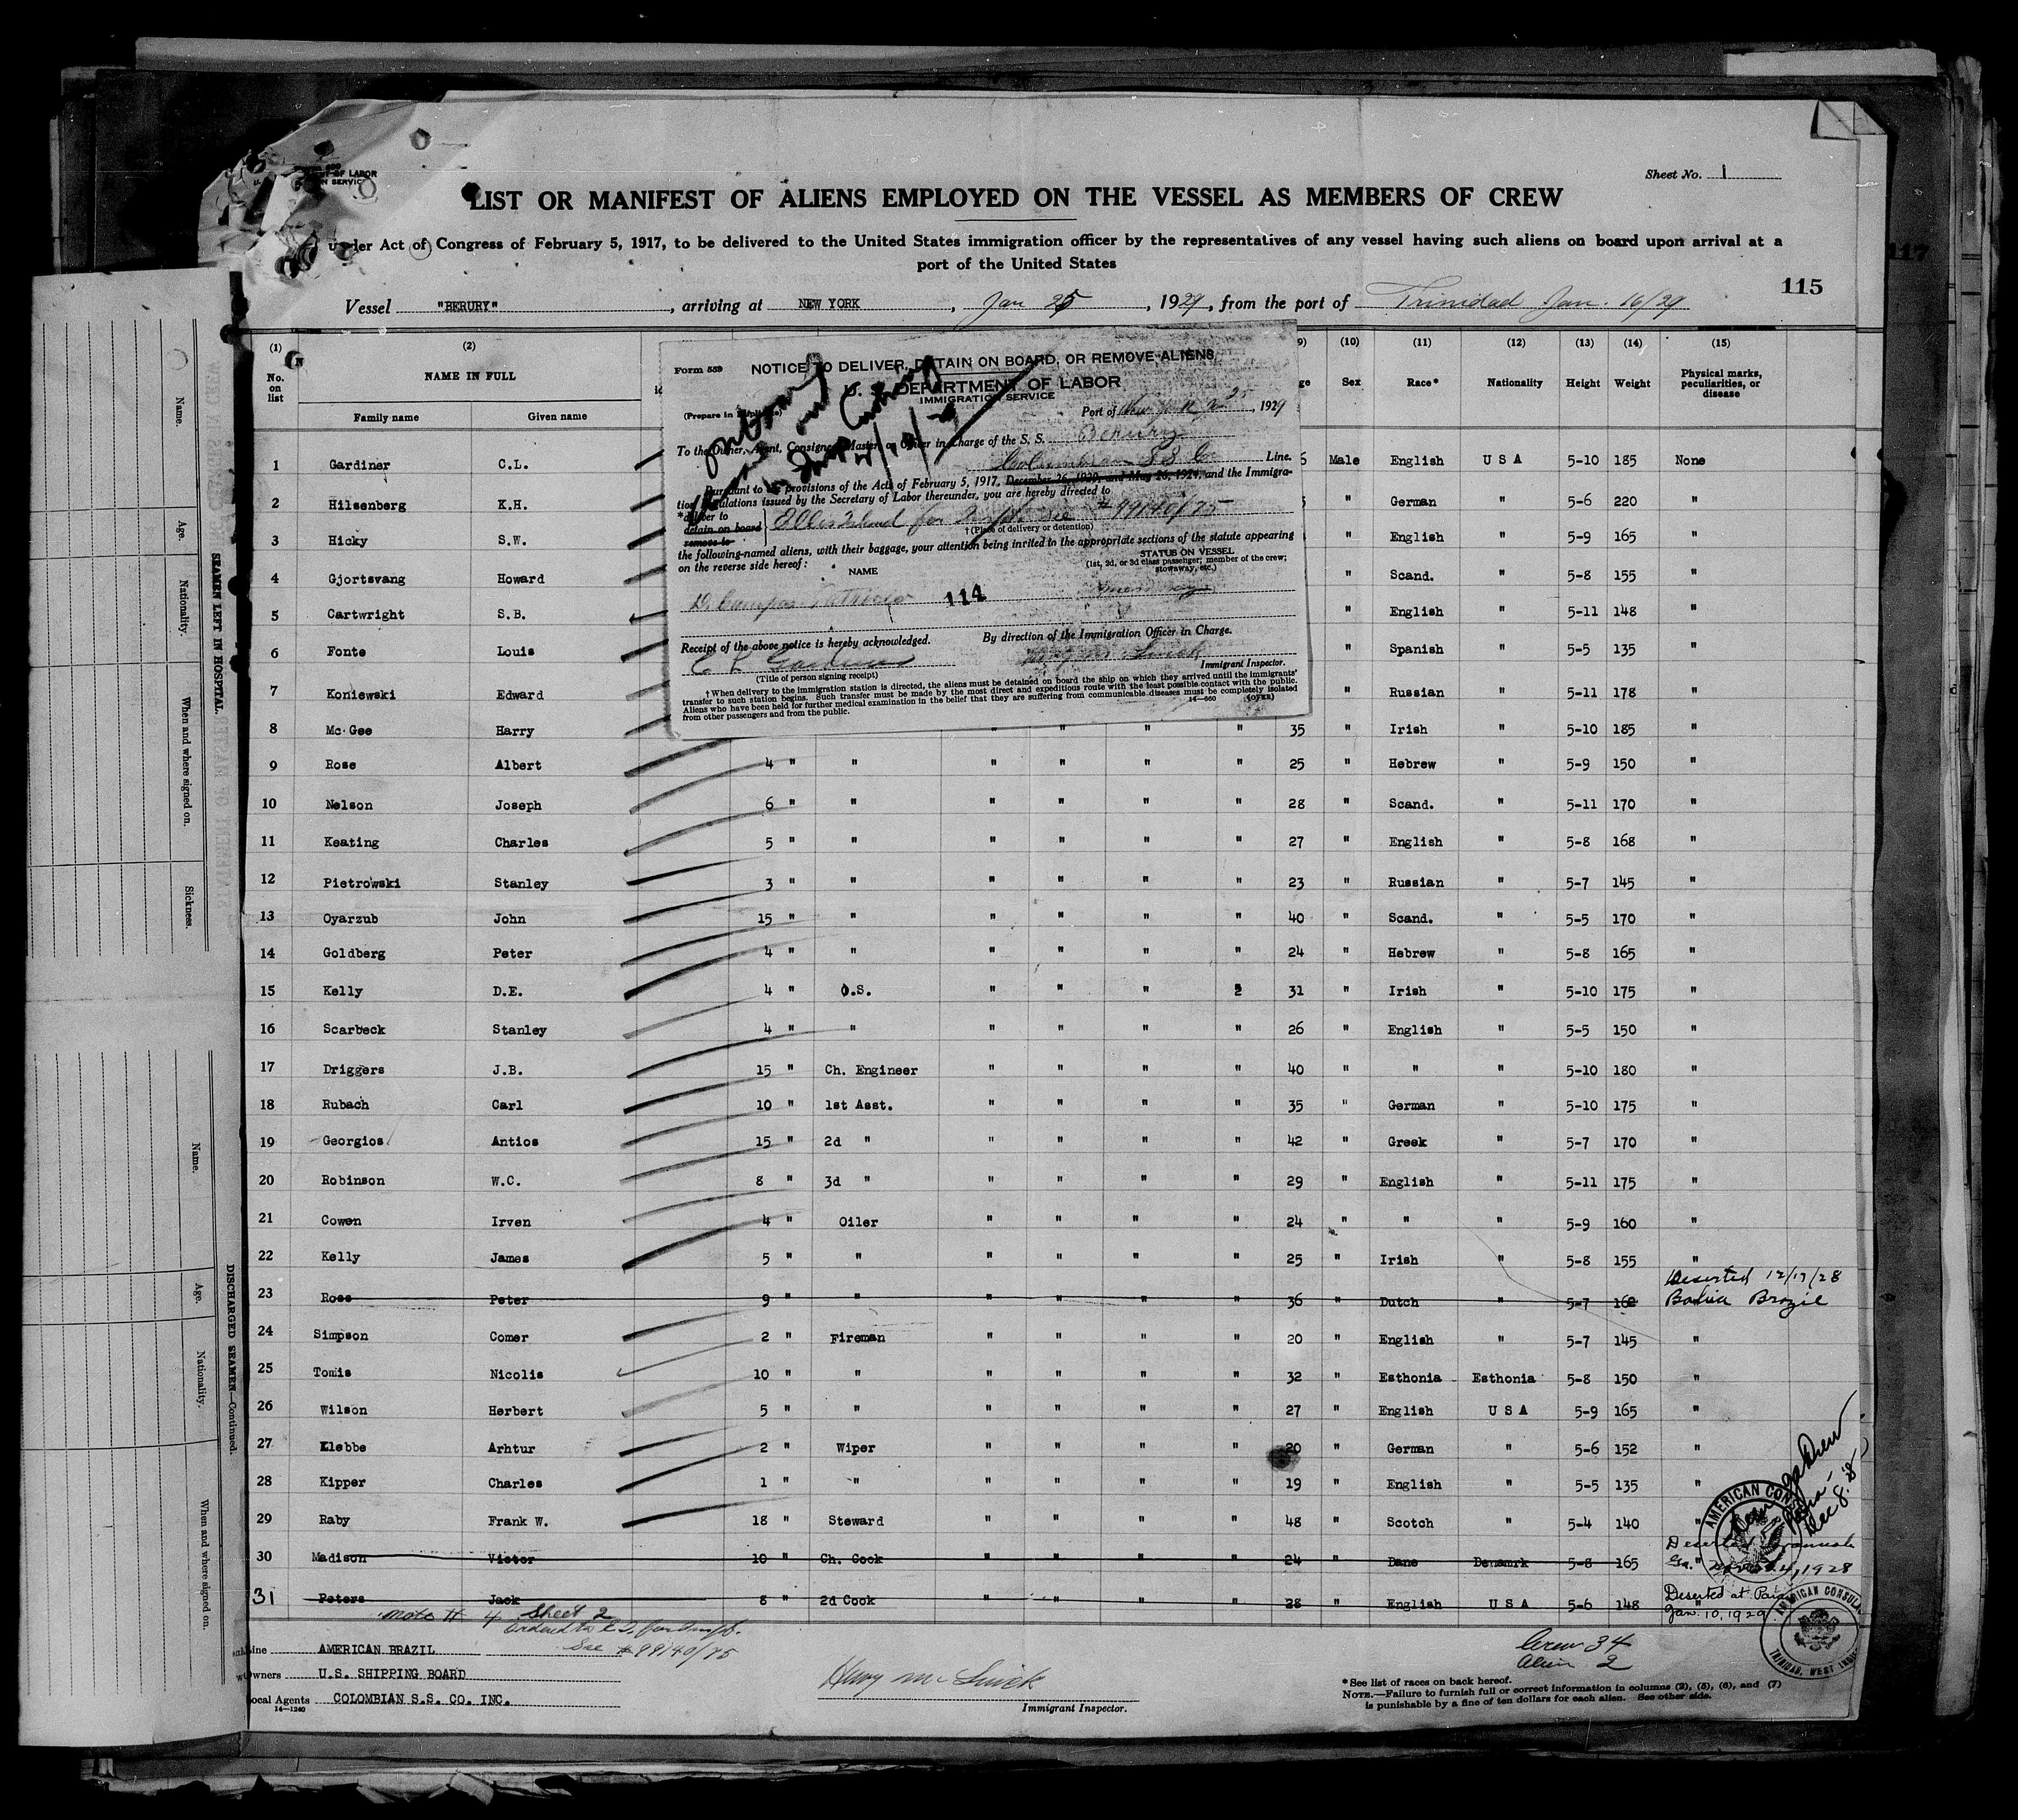 Sheet No. 1
LIST OR MANIFEST OF ALIENS EMPLOYED ON THE VESSEL AS MEMBERS OF CREW
under Act of Congress of February 5, 1917, to be delivered to the United States immigration officer by the representatives of any vessel having such aliens on board upon arrival at a
port of the United States
115
117
Vessel "BERURY", arriving at NEW YORK, Jan 25, 1929, from the port of Trinidad Jan. 16/29
(1) (2) (10) (11) (12) (13) (14) (15)
No. on list NAME IN FULL Sex Race* Nationality Height Weight Physical marks, peculiarities, or disease
Family name Given name
Form 559 NOTICE TO DELIVER, DETAIN ON BOARD, OR REMOVE ALIENS
U. S. DEPARTMENT OF LABOR
IMMIGRATION SERVICE
Port of New York 25, 1929
To the Owner, Agent, Consignee, Master, or Officer in Charge of the S. S. Berury
Colombian S S Co Line.
Pursuant to the provisions of the Acts of February 5, 1917, December 26, 1920, and May 26, 1924, and the Immigra-
tion regulations issued by the Secretary of Labor thereunder, you are hereby directed to
*deliver to
detain on board Ellis Island for # 99140/75
remove to † (Place of delivery or detention)
the following-named aliens, with their baggage, your attention being invited to the appropriate sections of the statute appearing
on the reverse side hereof:
NAME STATUS ON VESSEL
(1st, 2d, or 3d class passenger; member of the crew; stowaway, etc.)
114
Receipt of the above notice is hereby acknowledged. By direction of the Immigration Officer in Charge.
C L Gardiner
(Title of person signing receipt) Immigrant Inspector.
† When delivery to the immigration station is directed, the aliens must be detained on board the ship on which they arrived until the immigrants'
transfer to such station begins. Such transfer must be made by the most direct and expeditious route with the least possible contact with the public.
Aliens who have been held for further medical examination in the belief that they are suffering from communicable diseases must be completely isolated
from other passengers and from the public.
1 Gardiner C.L. Male English U S A 5-10 185 None
2 Hilsenberg K.H. " German " 5-6 220 "
3 Hicky S.W. " English " 5-9 165 "
4 Gjortsvang Howard " Scand. " 5-8 155 "
5 Cartwright S.B. " English " 5-11 148 "
6 Fonte Louis " Spanish " 5-5 135 "
7 Koniewski Edward " Russian " 5-11 178 "
8 Mc Gee Harry " " " " 35 " Irish " 5-10 185 "
9 Rose Albert 4 " " " " " " 25 " Hebrew " 5-9 150 "
10 Nelson Joseph 6 " " " " " " 28 " Scand. " 5-11 170 "
11 Keating Charles 5 " " " " " " 27 " English " 5-8 168 "
12 Pietrowski Stanley 3 " " " " " " 23 " Russian " 5-7 145 "
13 Oyarzub John 15 " " " " " " 40 " Scand. " 5-5 170 "
14 Goldberg Peter 4 " " " " " " 24 " Hebrew " 5-8 165 "
15 Kelly D.E. 4 " O.S. " " " 2 31 " Irish " 5-10 175 "
16 Scarbeck Stanley 4 " " " " " " 26 " English " 5-5 150 "
17 Driggers J.B. 15 " Ch. Engineer " " " " 40 " " " 5-10 180 "
18 Rubach Carl 10 " 1st Asst. " " " " 35 " German " 5-10 175 "
19 Georgios Antios 15 " 2d " " " " " 42 " Greek " 5-7 170 "
20 Robinson W.C. 8 " 3d " " " " " 29 " English " 5-11 175 "
21 Cowen Irven 4 " Oiler " " " " 24 " " " 5-9 160 "
22 Kelly James 5 " " " " " " 25 " Irish " 5-8 155 "
23 Rose Peter 9 " " " " " " 36 " Dutch " 5-7 162 Deserted 12/17/28 Bahia Brazil
24 Simpson Comer 2 " Fireman " " " " 20 " English " 5-7 145 "
25 Tomis Nicolis 10 " " " " " " 32 " Esthonia Esthonia 5-8 150 "
26 Wilson Herbert 5 " " " " " " 27 " English U S A 5-9 165 "
27 Klebbe Arhtur 2 " Wiper " " " " 20 " German " 5-6 152 "
28 Kipper Charles 1 " " " " " " 19 " English " 5-5 135 "
29 Raby Frank W. 18 " Steward " " " " 48 " Scotch " 5-4 140 "
30 Madison Victor 10 " Ch. Cook " " " " 24 " Dane Denamrk 5-8 165 Deserted Savannah Ga. 1928
31 Peters Jack 8 " 2d Cook " " " " 28 " English U S A 5-6 148 Deserted at Para Jan. 10, 1929
AMERICAN CONSUL
Dec 8. 28
AMERICAN CONSULATE
TRINIDAD, WEST INDIES
note # 4 Sheet 2
Ordered to E.I.
See # 99140/75
Line AMERICAN BRAZIL
Owners U.S. SHIPPING BOARD
Local Agents COLOMBIAN S.S. CO. INC.
14—1240
Immigrant Inspector.
Crew 34
Alien 2
* See list of races on back hereof.
NOTE.—Failure to furnish full or correct information in columns (2), (5), (6), and (7)
is punishable by a fine of ten dollars for each alien. See other side.
SEAMEN LEFT IN HOSPITAL.
Name. Age. Nationality. When and where signed on. Sickness.
DISCHARGED SEAMEN—Continued.
Name. Age. Nationality. When and where signed on.